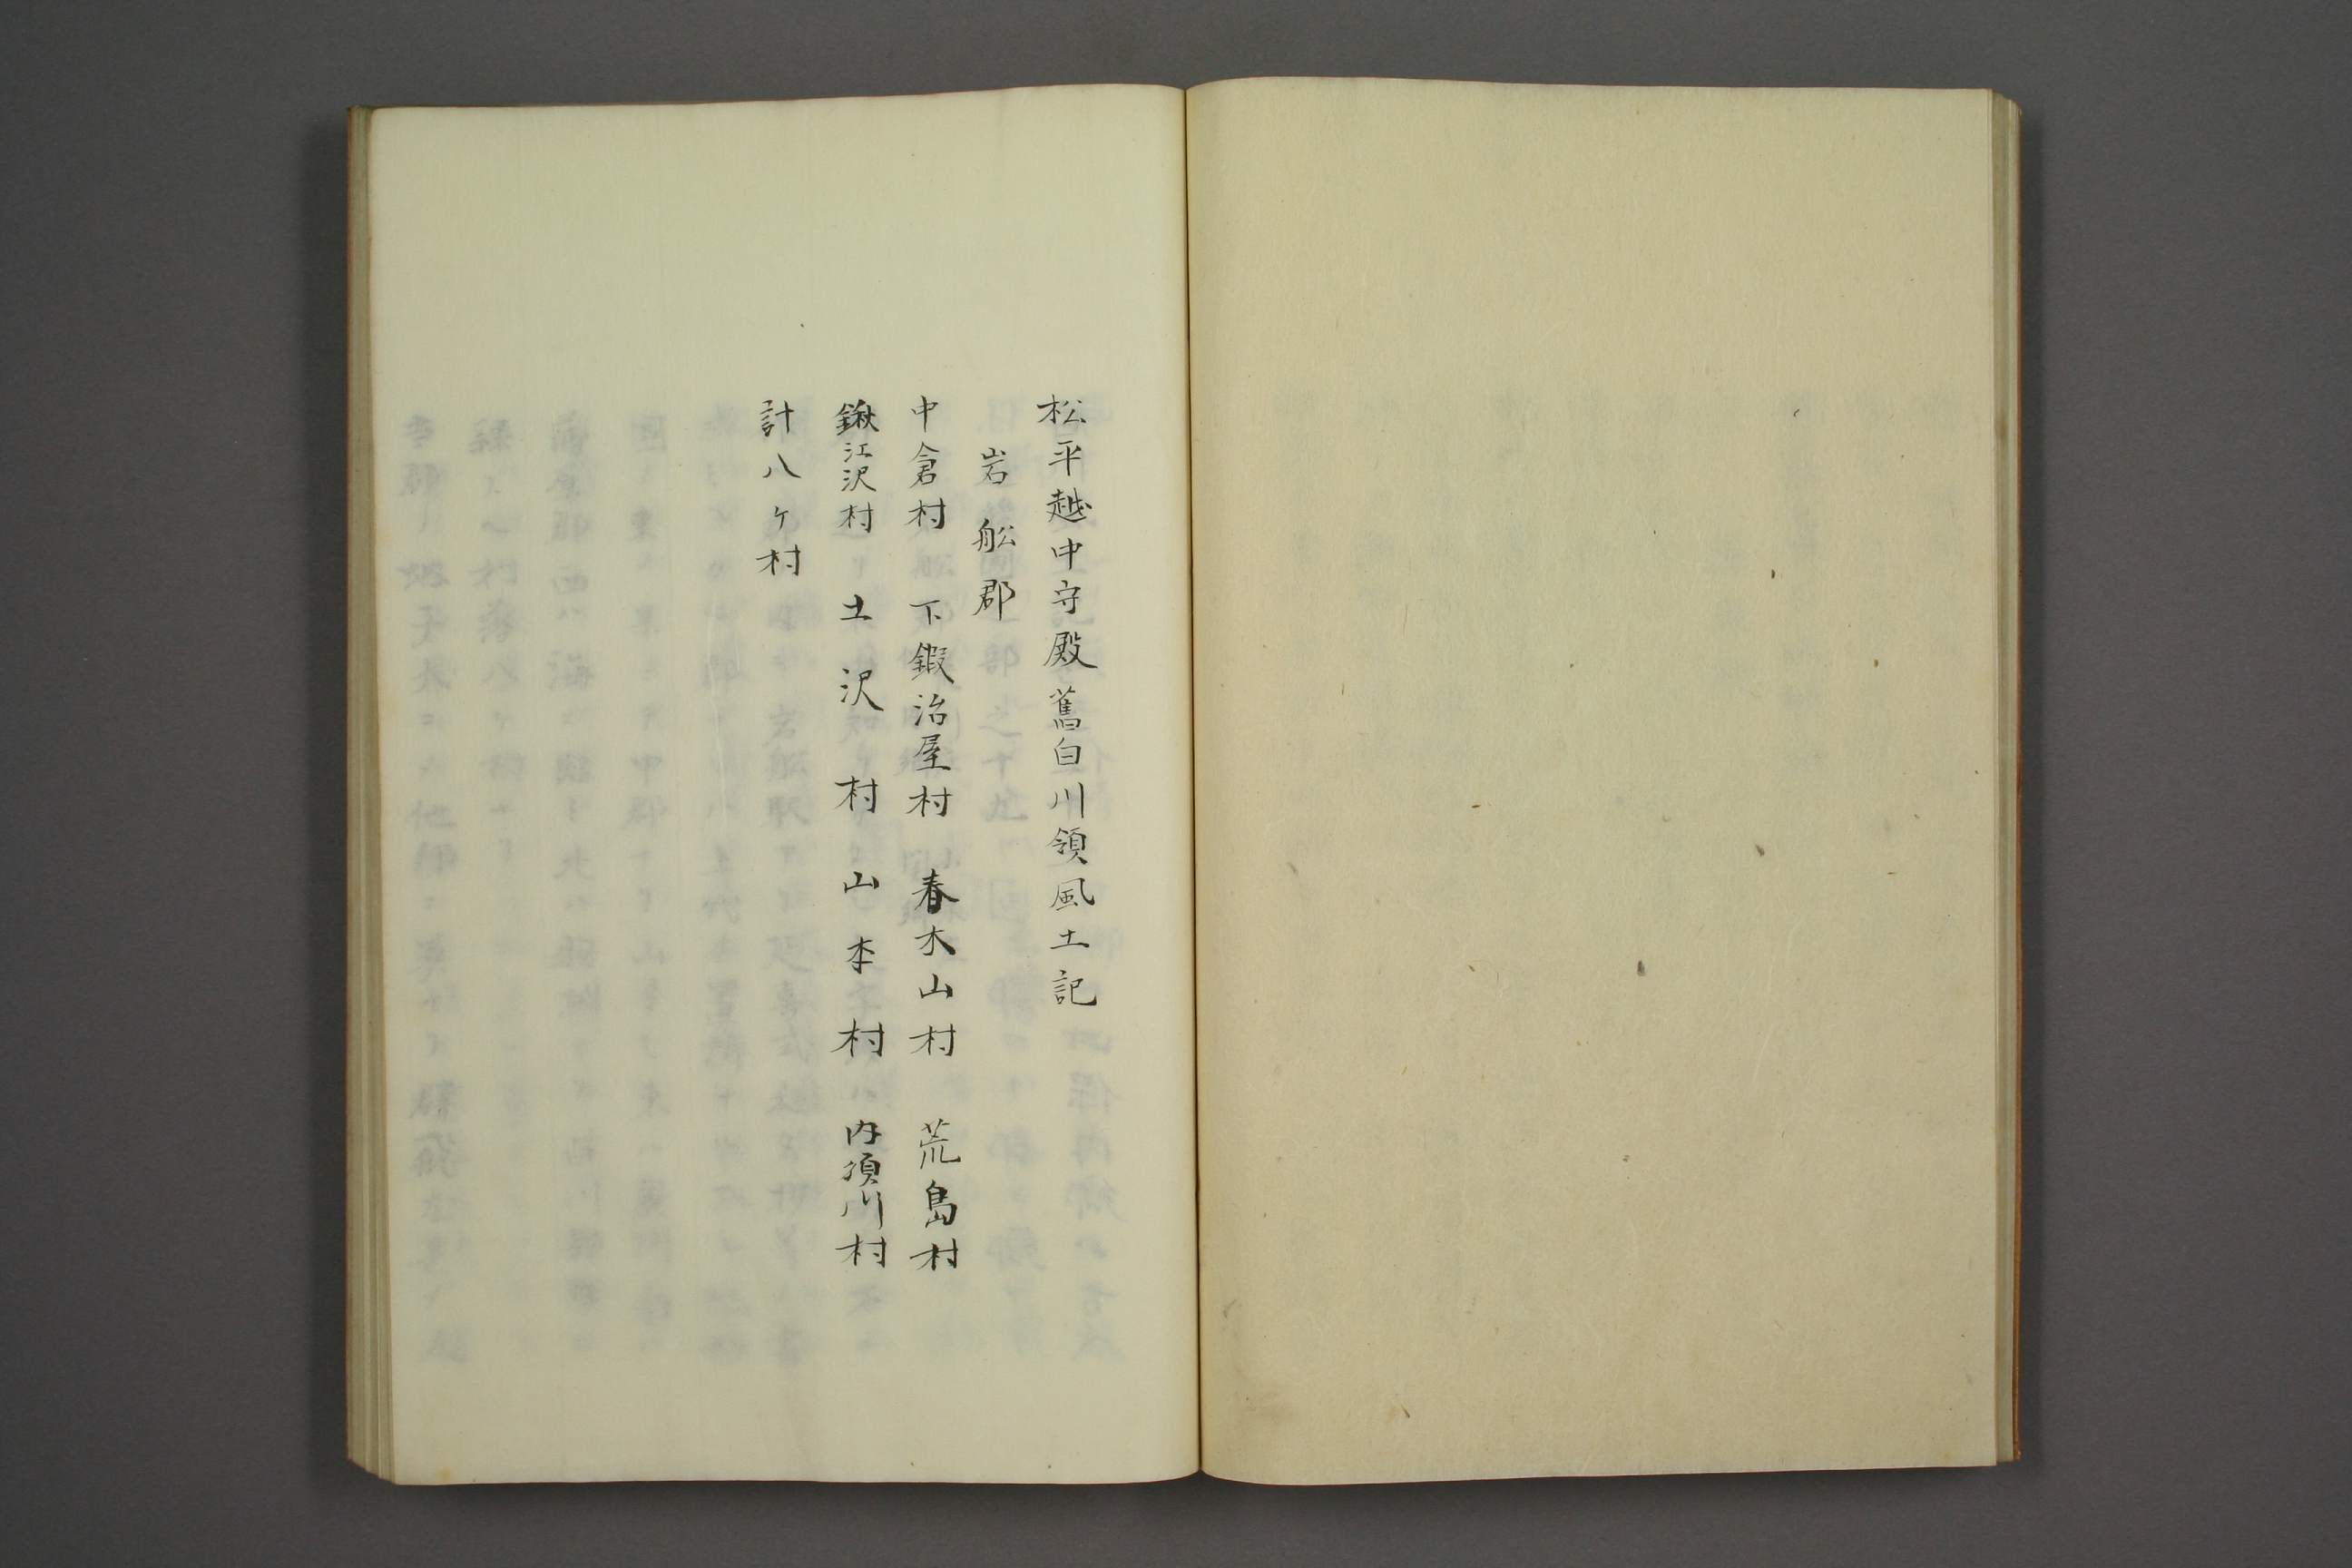 松平越中守殿舊白川領風土記
岩船郡
中倉村 下鍜治屋村 春木山村 荒島村
鍬江沢村 土沢村 山本村 内須川村
計八ヶ村